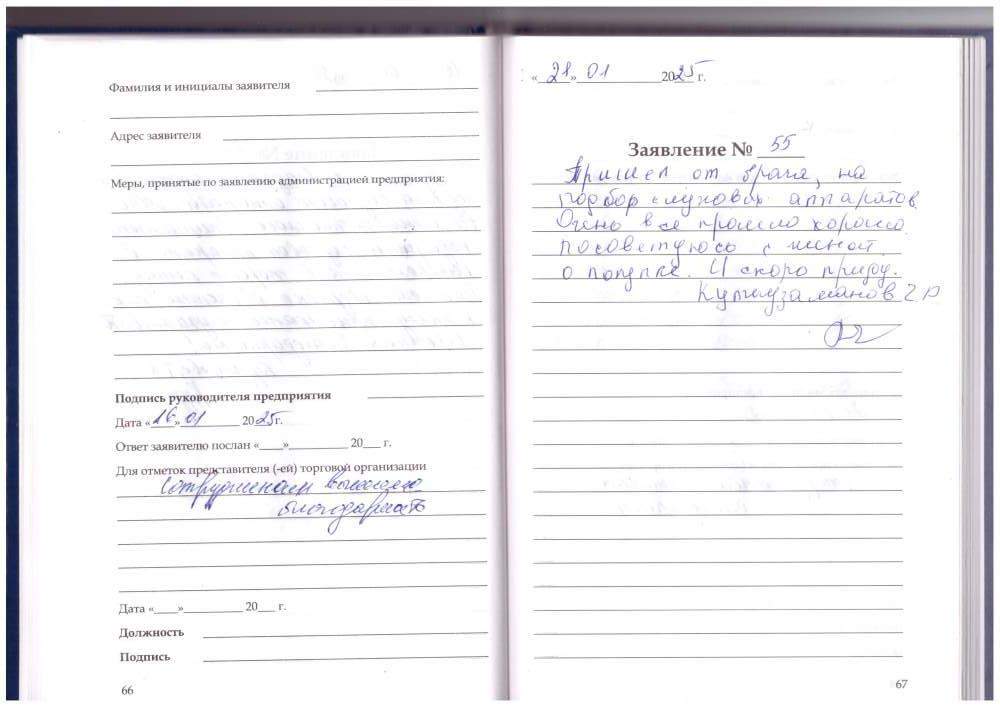 Фамилия и инициалы заявителя
Адрес заявителя
Меры, принятые по заявлению администрацией предприятия:
Подпись руководителя предприятия
Дата «16» 01 2025 г.
Ответ заявителю послан «___» ______ 20__ г.
Для отметок представителя (-ей) торговой организации
Сотрудникам
благодарность
Дата «___» ______ 20__ г.
Должность
Подпись
66
«21» 01 2025 г.
Заявление № 55
Пришел от врача, на
подбор слуховых аппаратов.
Очень все прошло хорошо
посоветуюсь с женой
о покупке. И скоро приду.
67